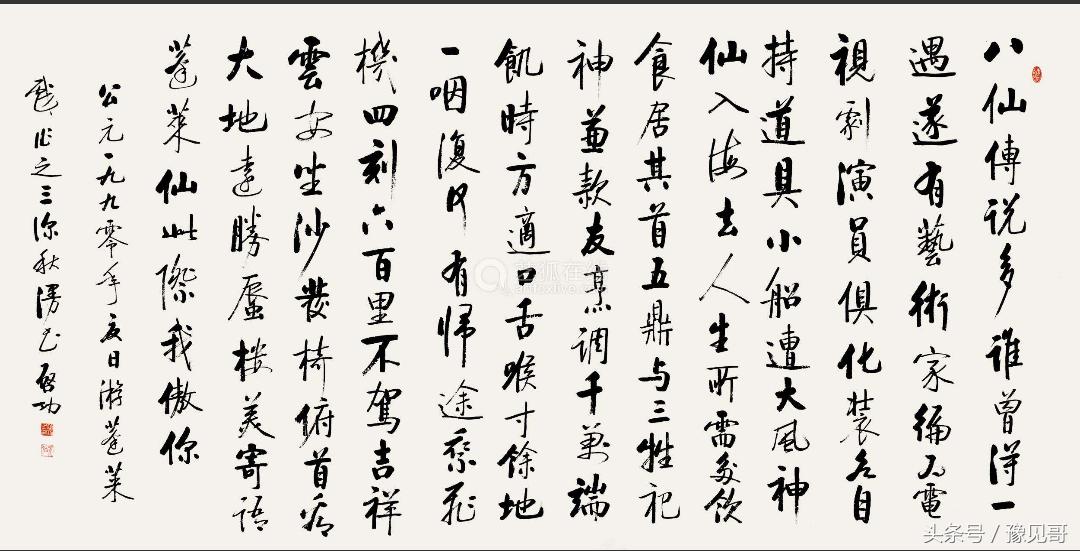 八仙傳说多誰曾得一
遇遂有藝術家編为電
視劇演員俱化裝各自
持道具小船遭大風神
仙入海去人生所需多飲
食居其首五鼎与三牲祀
神兼款友烹调千萬端
飢時方適口舌喉寸餘地
一咽復何有歸途乘飛
機四刻六百里不駕吉祥
雲安坐沙發椅俯首看
大地遠勝蜃楼美寄語
蓬萊仙此際我傲你
公元一九九零年夏日游蓬萊
戲作之三深秋漫书啓功
头条号／豫见哥